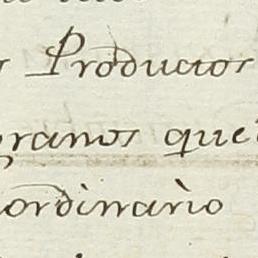 Productos
granos que
ordinario